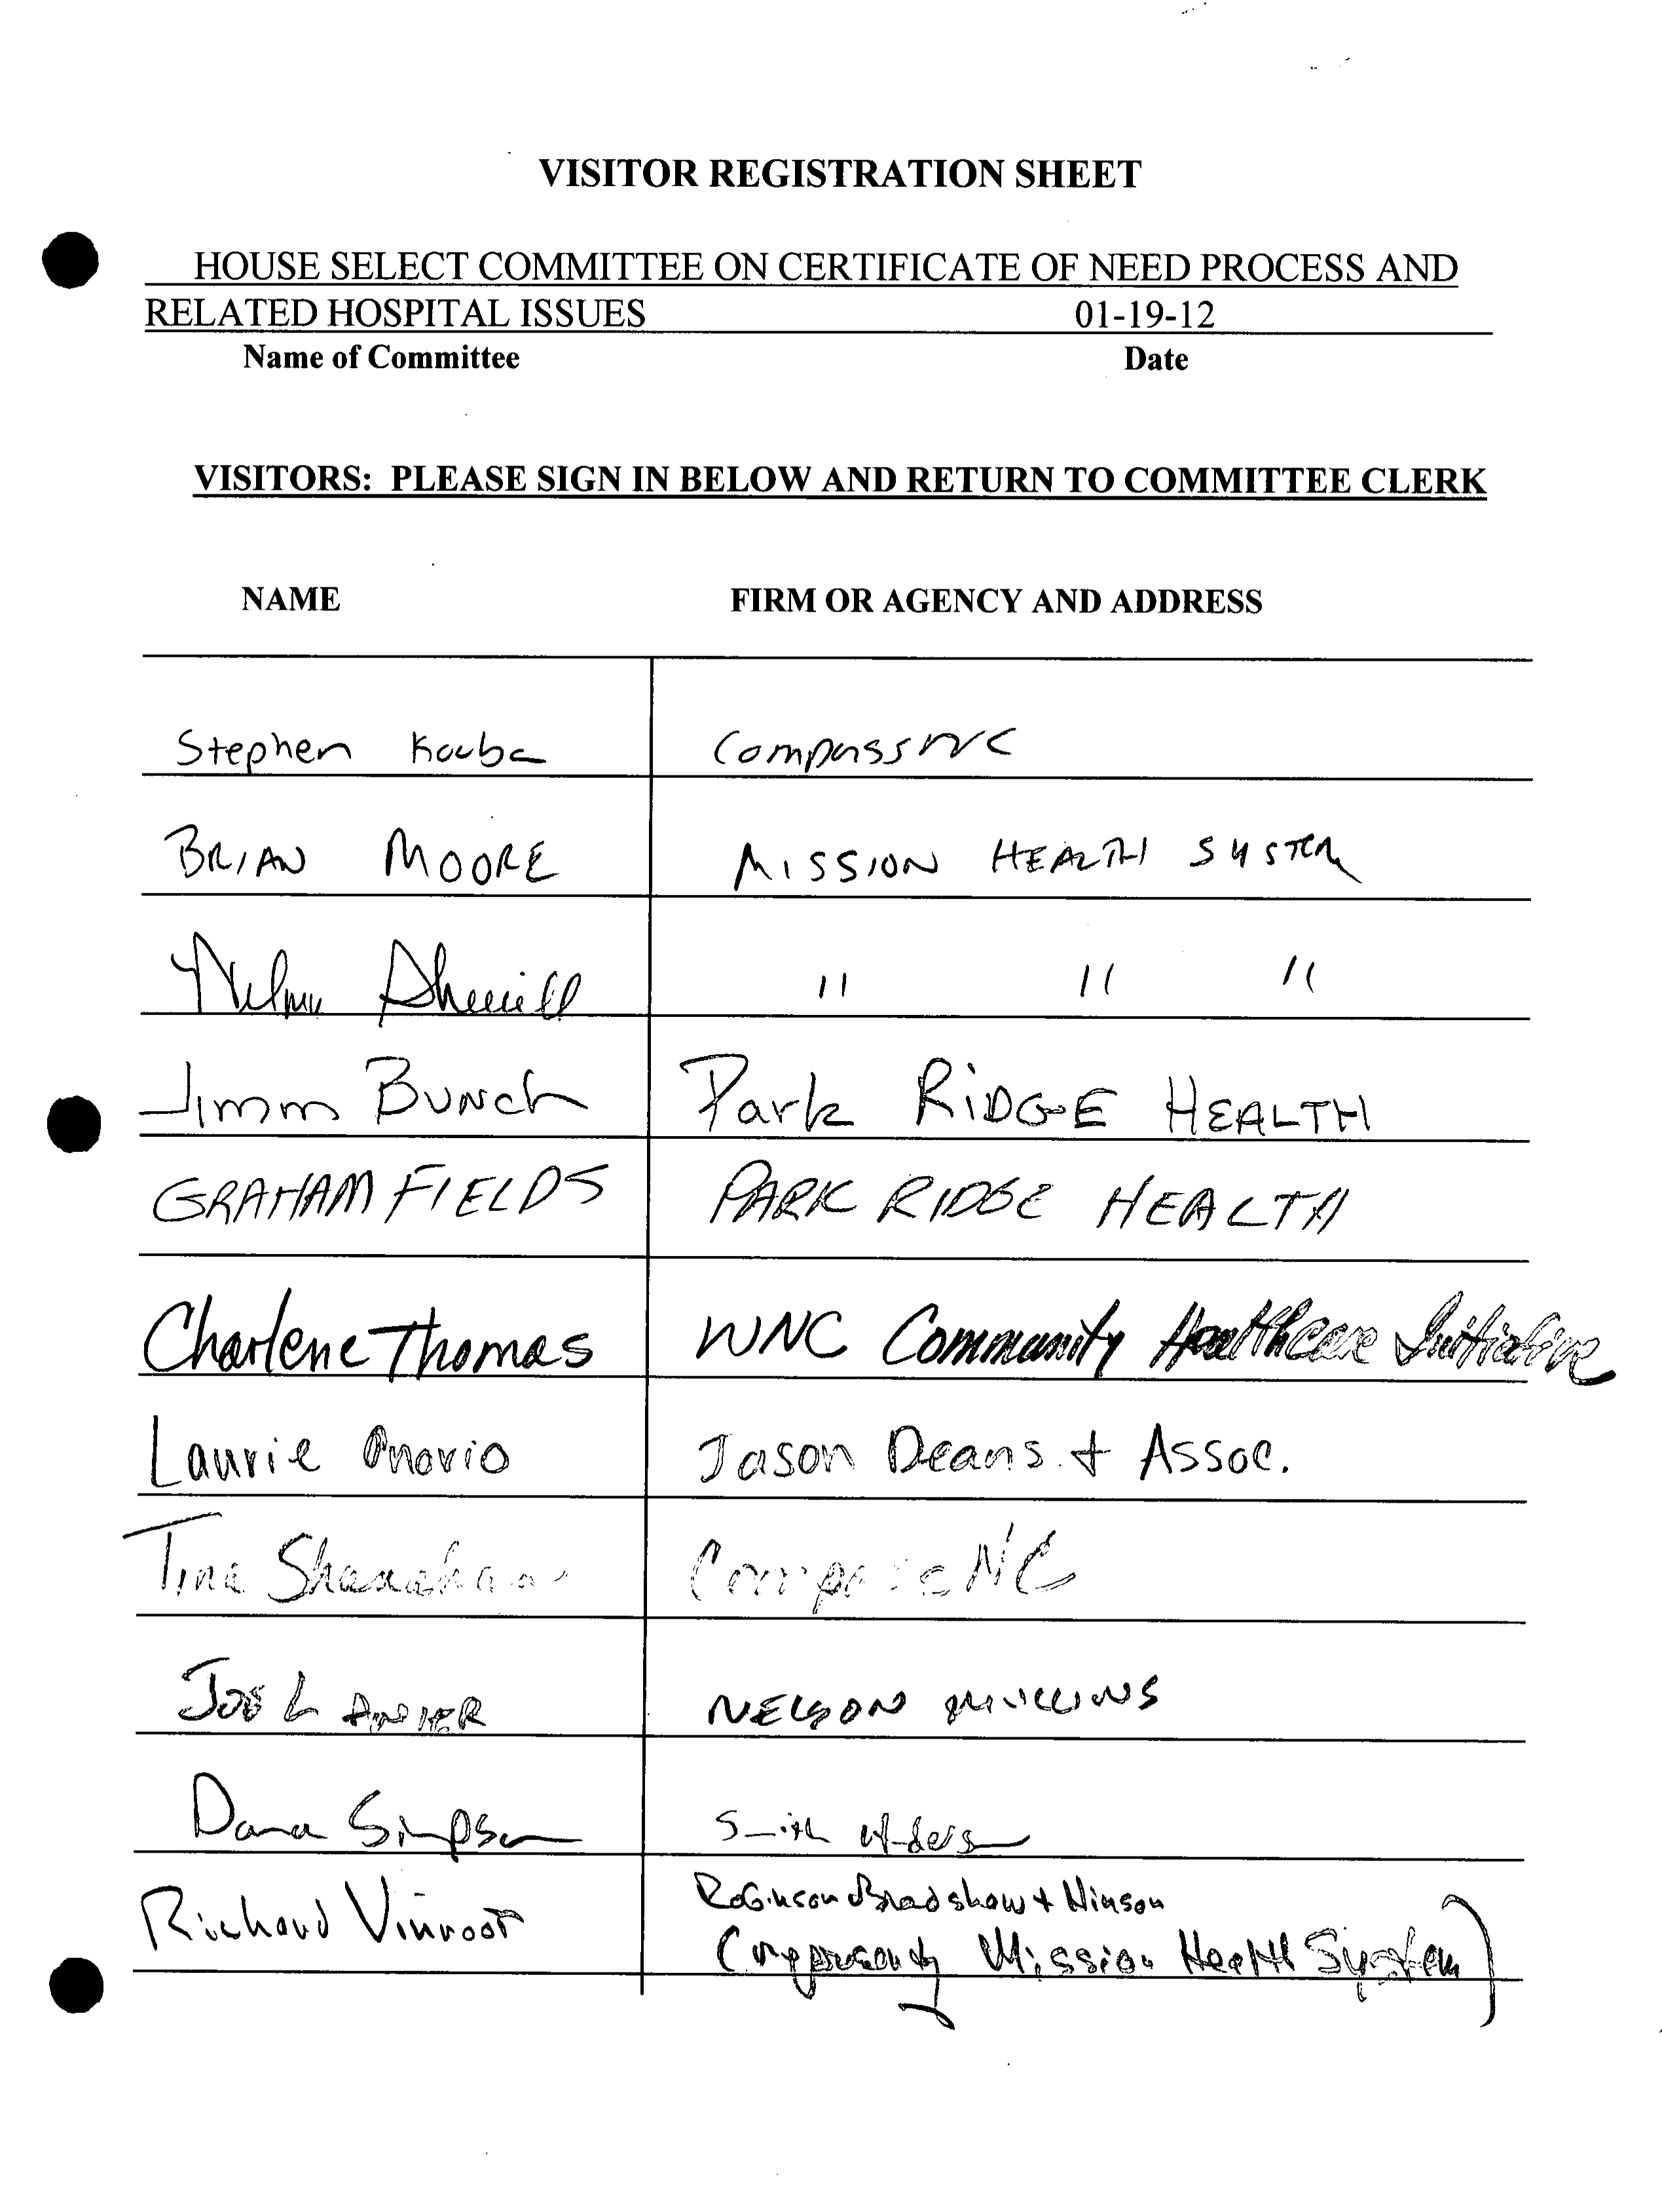 VISITOR REGISTRATION SHEET
HOUSE SELECT COMMITTEE ON CERTIFICATE OF NEED PROCESS AND
RELATED HOSPITAL ISSUES 01-19-12
Name of Committee Date
VISITORS: PLEASE SIGN IN BELOW AND RETURN TO COMMITTEE CLERK
NAME FIRM OR AGENCY AND ADDRESS
Stephen Kouba CompassNC
BRIAN MOORE MISSION HEALTH SYSTEM
Sherrill " " "
Jimm Bunch Park RIDGE HEALTH
GRAHAM FIELDS PARK RIDGE HEALTH
Charlene Thomas WNC Community Healthcare Initiative
Laurie Onorio Jason Deans + Assoc.
Tina Shanahan CompassNC
JOE LANIER NELSON MULLINS
Dana Simpson Smith Anderson
Richard Vinroot Robinson Bradshaw + Hinson
(representing Mission Health System)